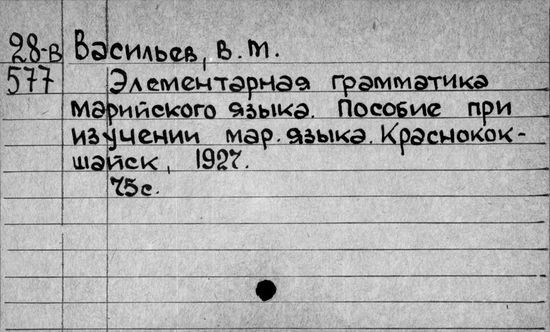 28-В Васильев, В.М.
577 Элементарная грамматика
марийского языка. Пособие при
изучении мар. языка. Краснокок-
шайск, 1927.
75с.